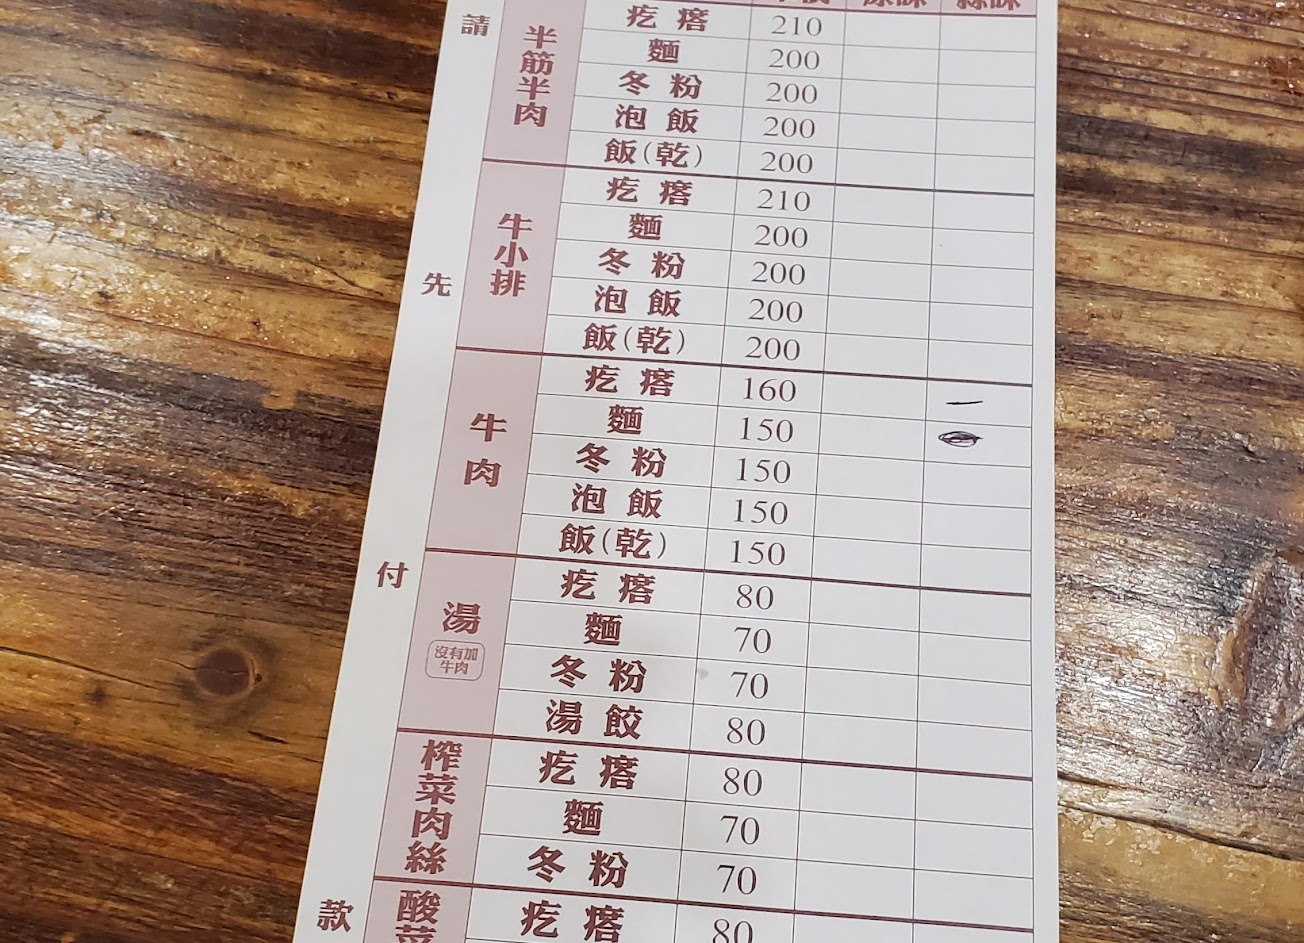 請先付款
半筋半肉
疙瘩 210
麵 200
冬粉 200
泡飯 200
飯(乾) 200
牛小排
疙瘩 210
麵 200
冬粉 200
泡飯 200
飯(乾) 200
牛肉
疙瘩 160 一
麵 150
冬粉 150
泡飯 150
飯(乾) 150
湯
沒有加
牛肉
疙瘩 80
麵 70
冬粉 70
湯餃 80
榨菜肉絲
疙瘩 80
麵 70
冬粉 70
酸菜
疙瘩 80